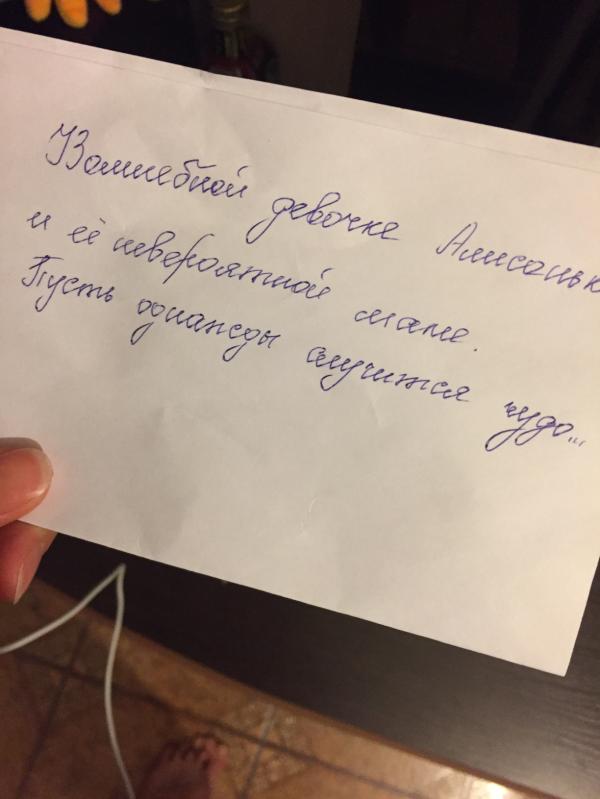 Волшебной девочке Алисоньк
и её невероятной маме.
Пусть однажды случится чудо...